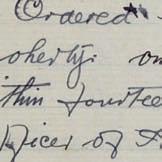 Ordered
operty: on
ithin fourtee
fficer of A